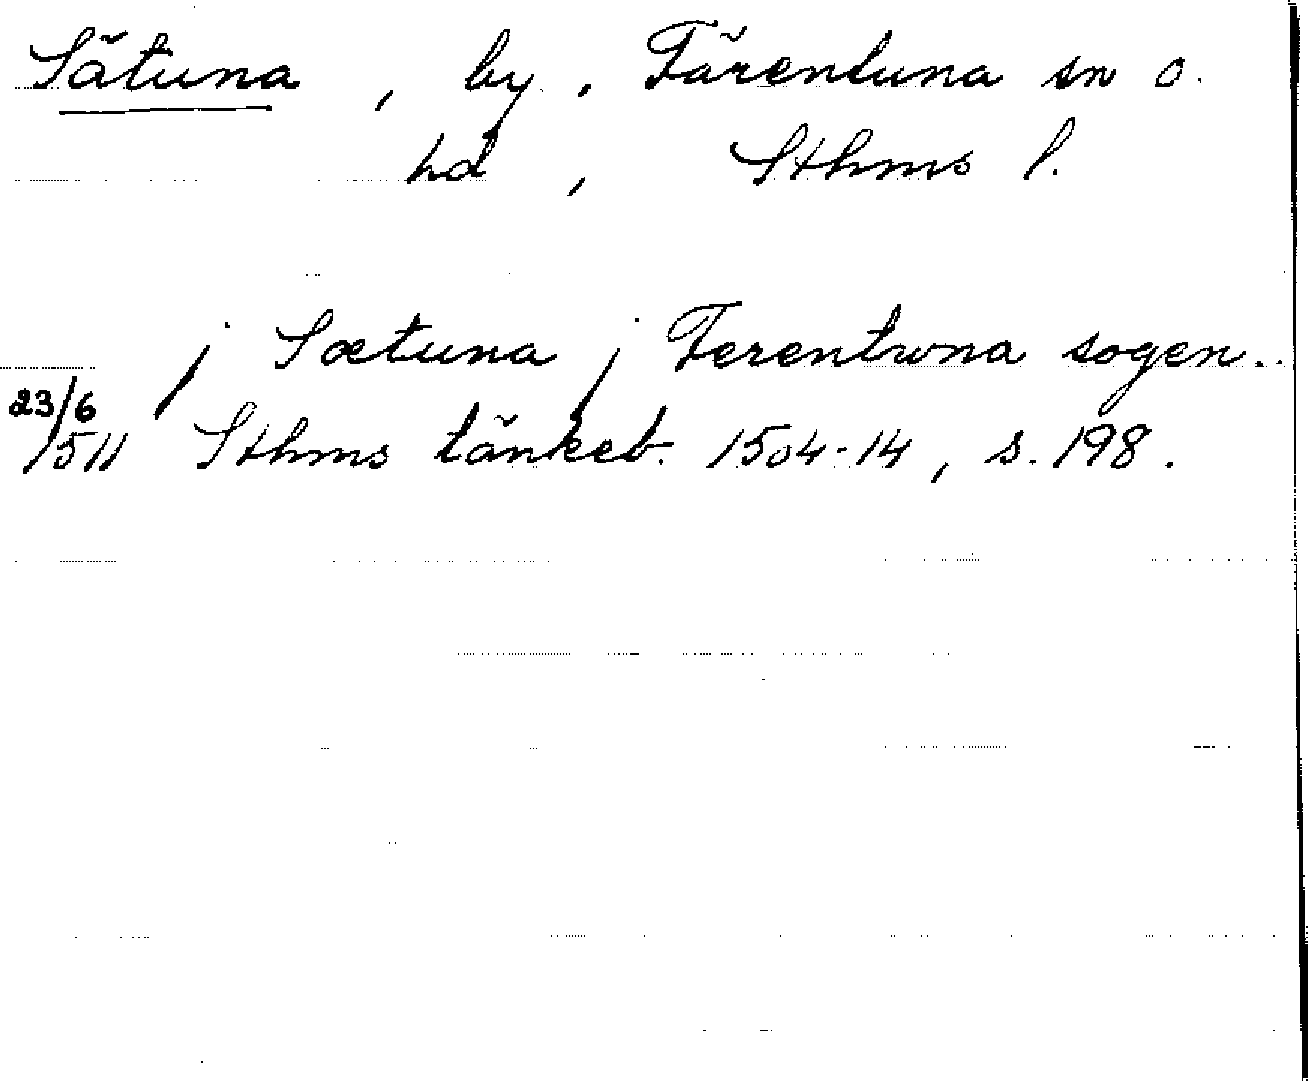 Sätuna, by, Färentuna sn o.
hd, Sthms l.
j Sætuna j Ferentwna sogen..
23/6
1511 Sthms tänkeb. 1504-14, s. 198.